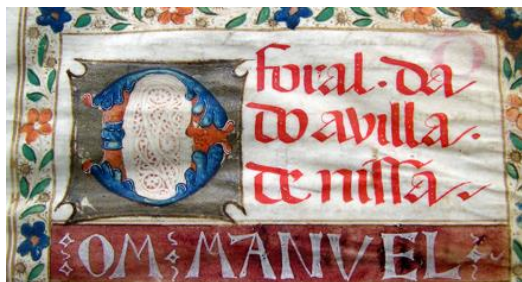 foral · da
do a villa ·
de nissa ·
D
OM MANVEL